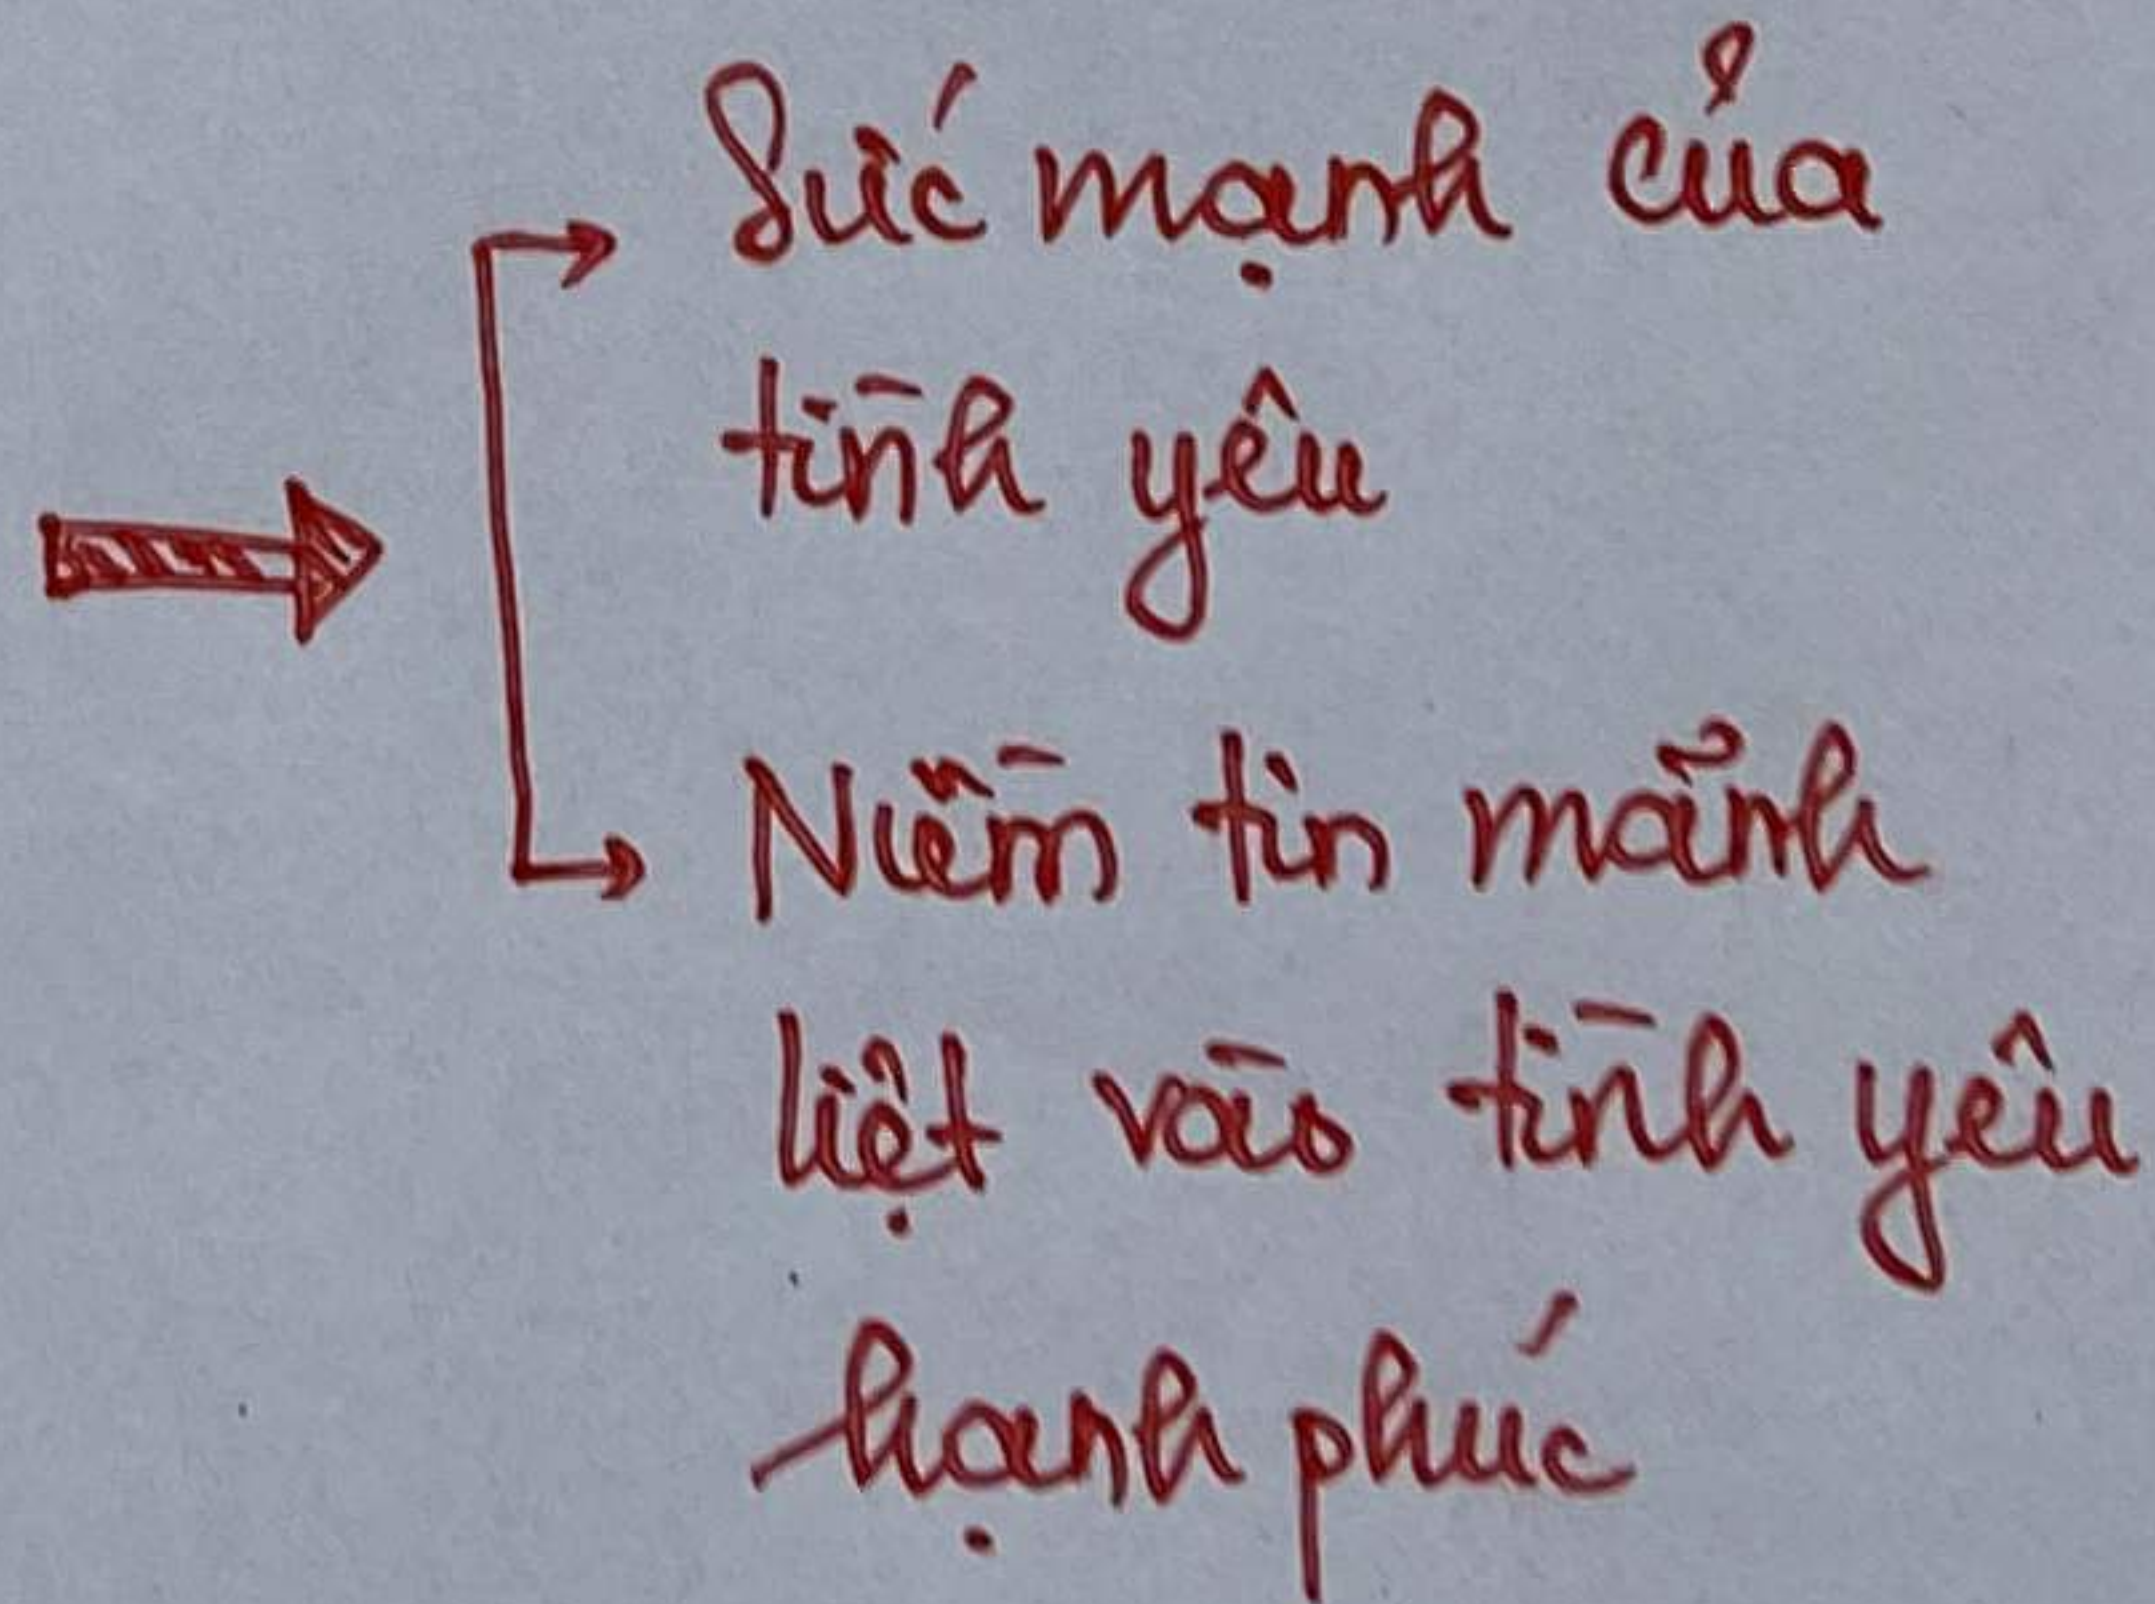 Sức mạnh của
tình yêu
Niềm tin mãnh
liệt vào tình yêu
hạnh phúc